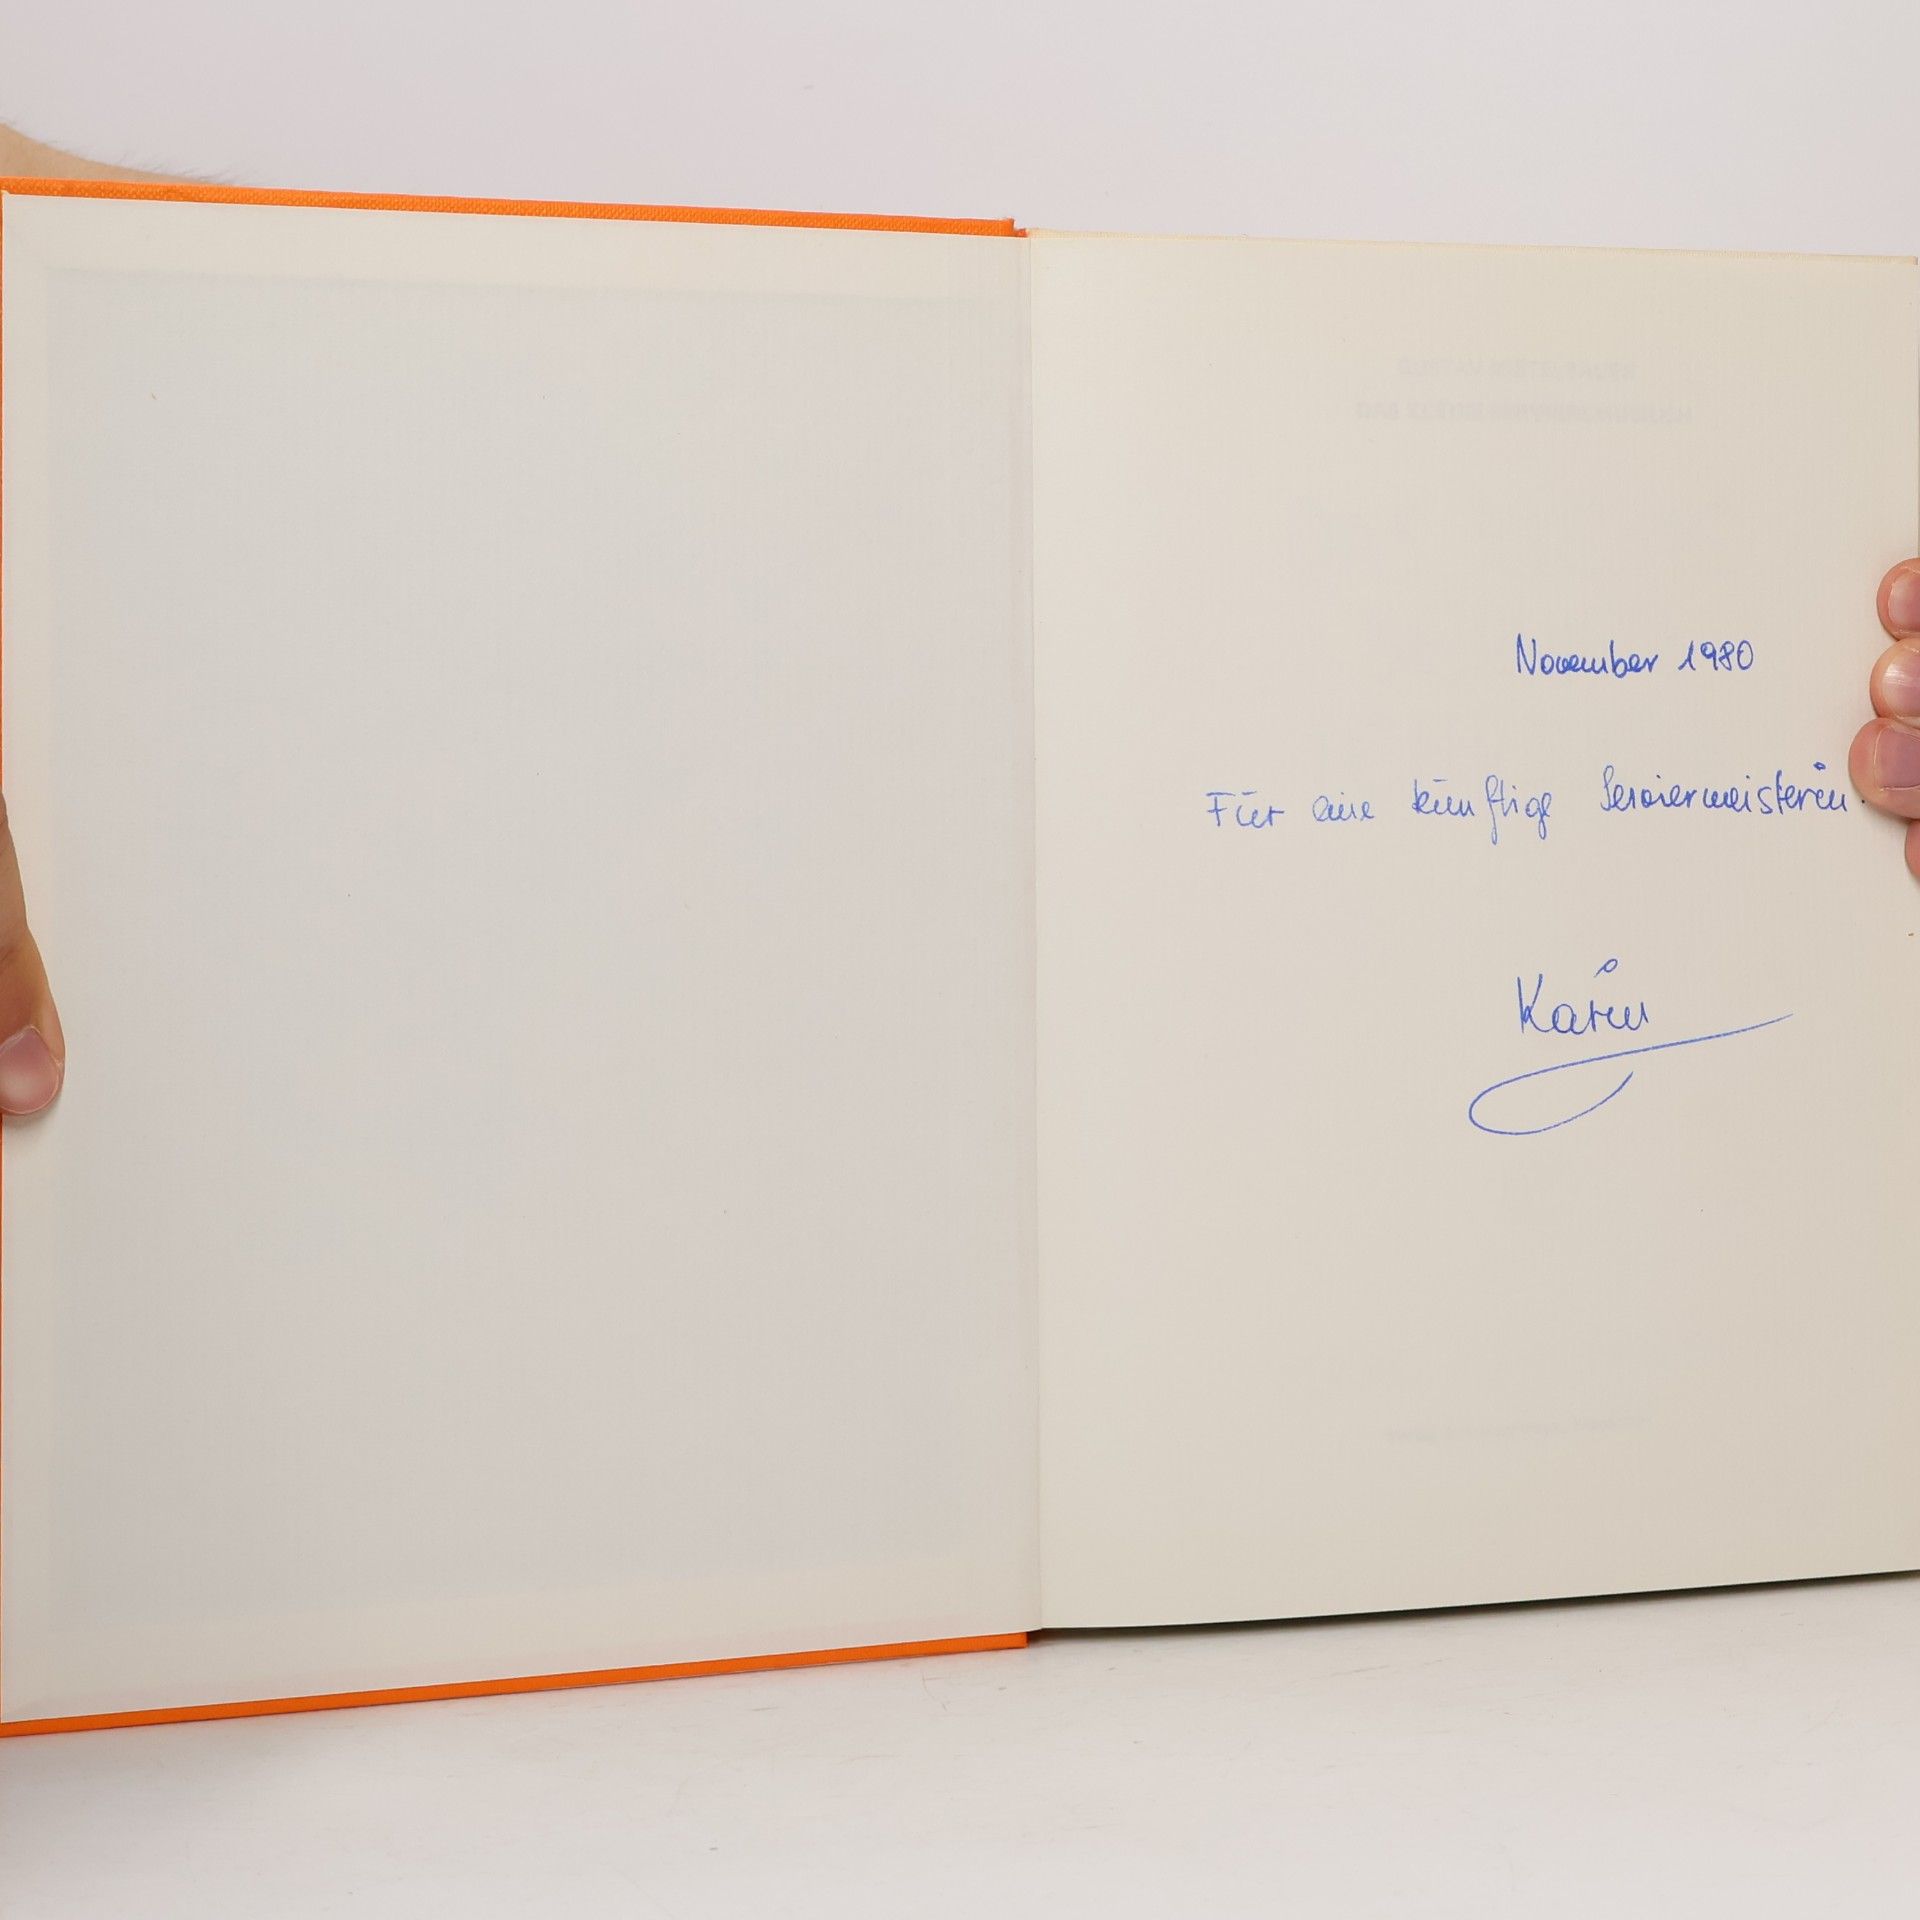 November 1980
Für eine künftige Serviermeisterin.
Karin